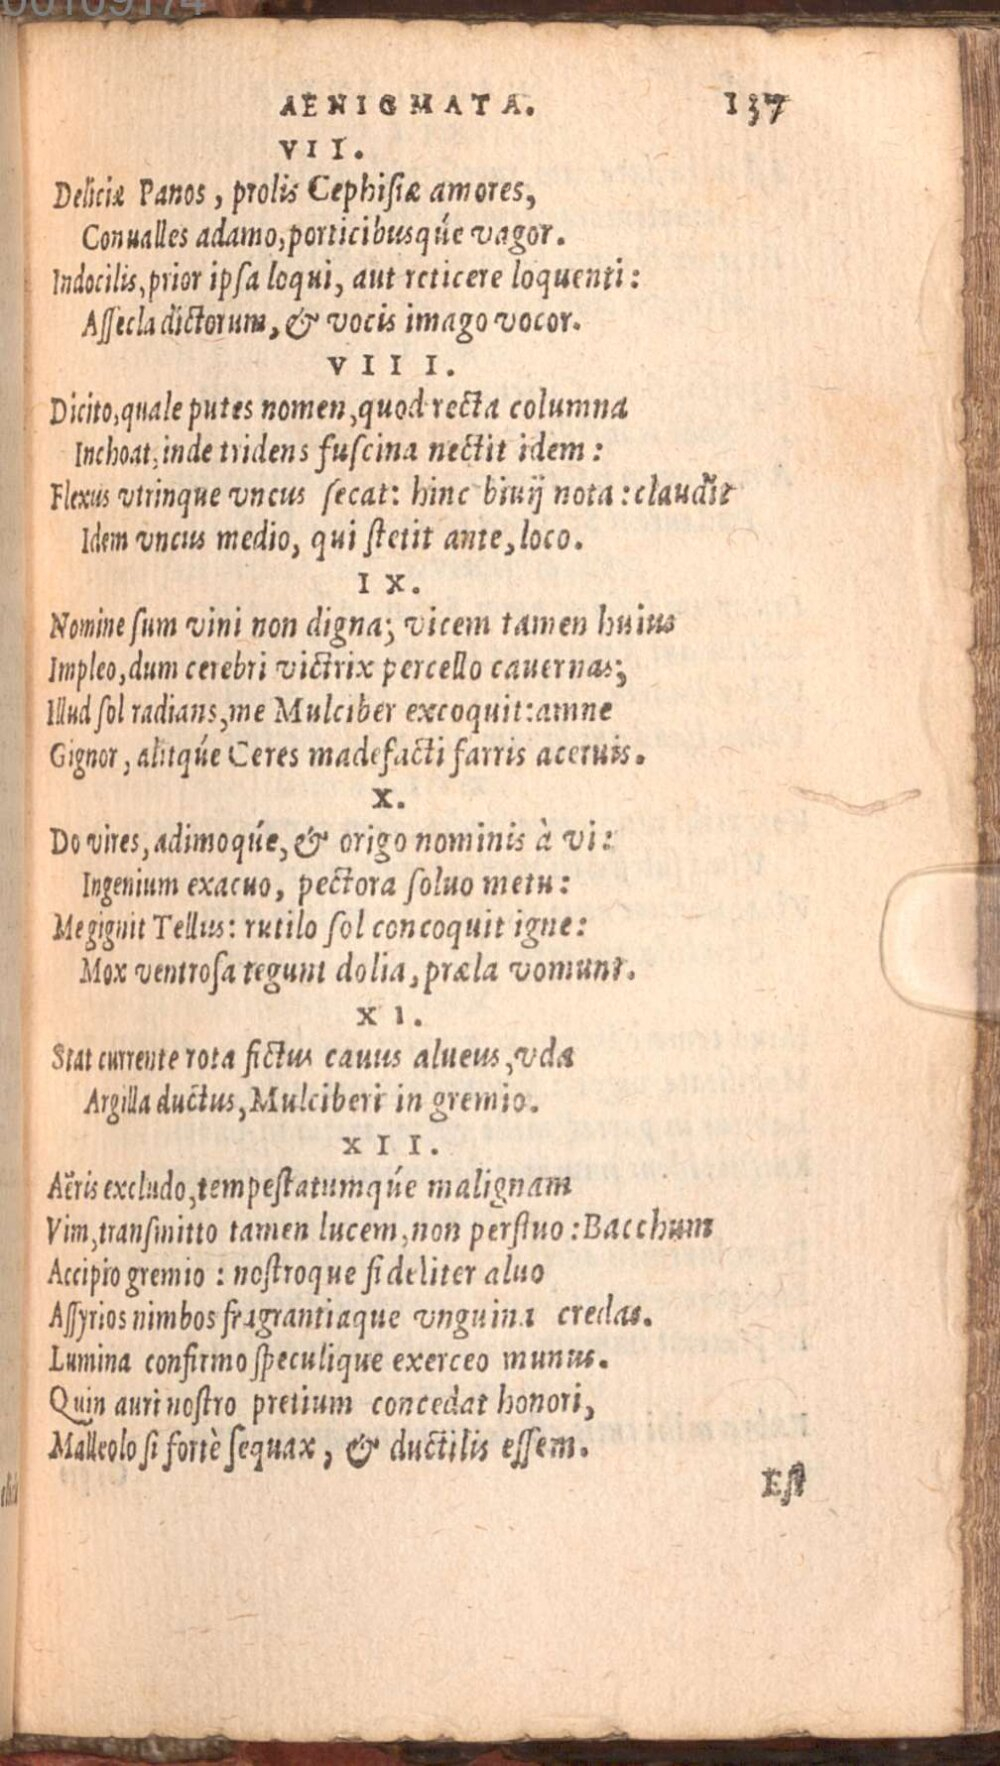 AENIGMATA. 137
VII.
Deliciæ Panos, prolis Cephisiæ amores,
Conualles adamo, porticibusqúe vagor.
Indocilis, prior ipſa loqui, aut reticere loquenti:
Aſſecla dictorum, & vocis imago vocor.
VIII.
Dicito, quale putes nomen, quod recta columna
Inchoat, inde tridens fuſcina nectit idem:
Flexus vtrinque vncus ſecat: hinc biuij nota: claudit
Idem vncus medio, qui ſtetit ante, loco.
IX.
Nomine ſum vini non digna; vicem tamen huius
Impleo, dum cerebri victrix percello cauernas;
Illud ſol radians, me Mulciber excoquit: amne
Gignor, alitqúe Ceres madefacti farris aceruis.
X.
Do vires, adimoqúe, & origo nominis à vi:
Ingenium exacuo, pectora ſoluo metu:
Me gignit Tellus: rutilo ſol concoquit igne:
Mox ventroſa tegunt dolia, præla vomunt.
XI.
Stat currente rota fictus cauus alueus, vda
Argilla ductus, Mulciberi in gremio.
XII.
Aëris excludo, tempeſtatumqúe malignam
Vim, tranſmitto tamen lucem, non perfluo: Bacchum
Accipio gremio: noſtroque fideliter aluo
Aſſyrios nimbos fragrantiaque vnguina credas.
Lumina confirmo ſpeculique exerceo munus.
Quin auri noſtro pretium concedat honori,
Malleolo ſi fortè ſequax, & ductilis eſſem.
Eſt